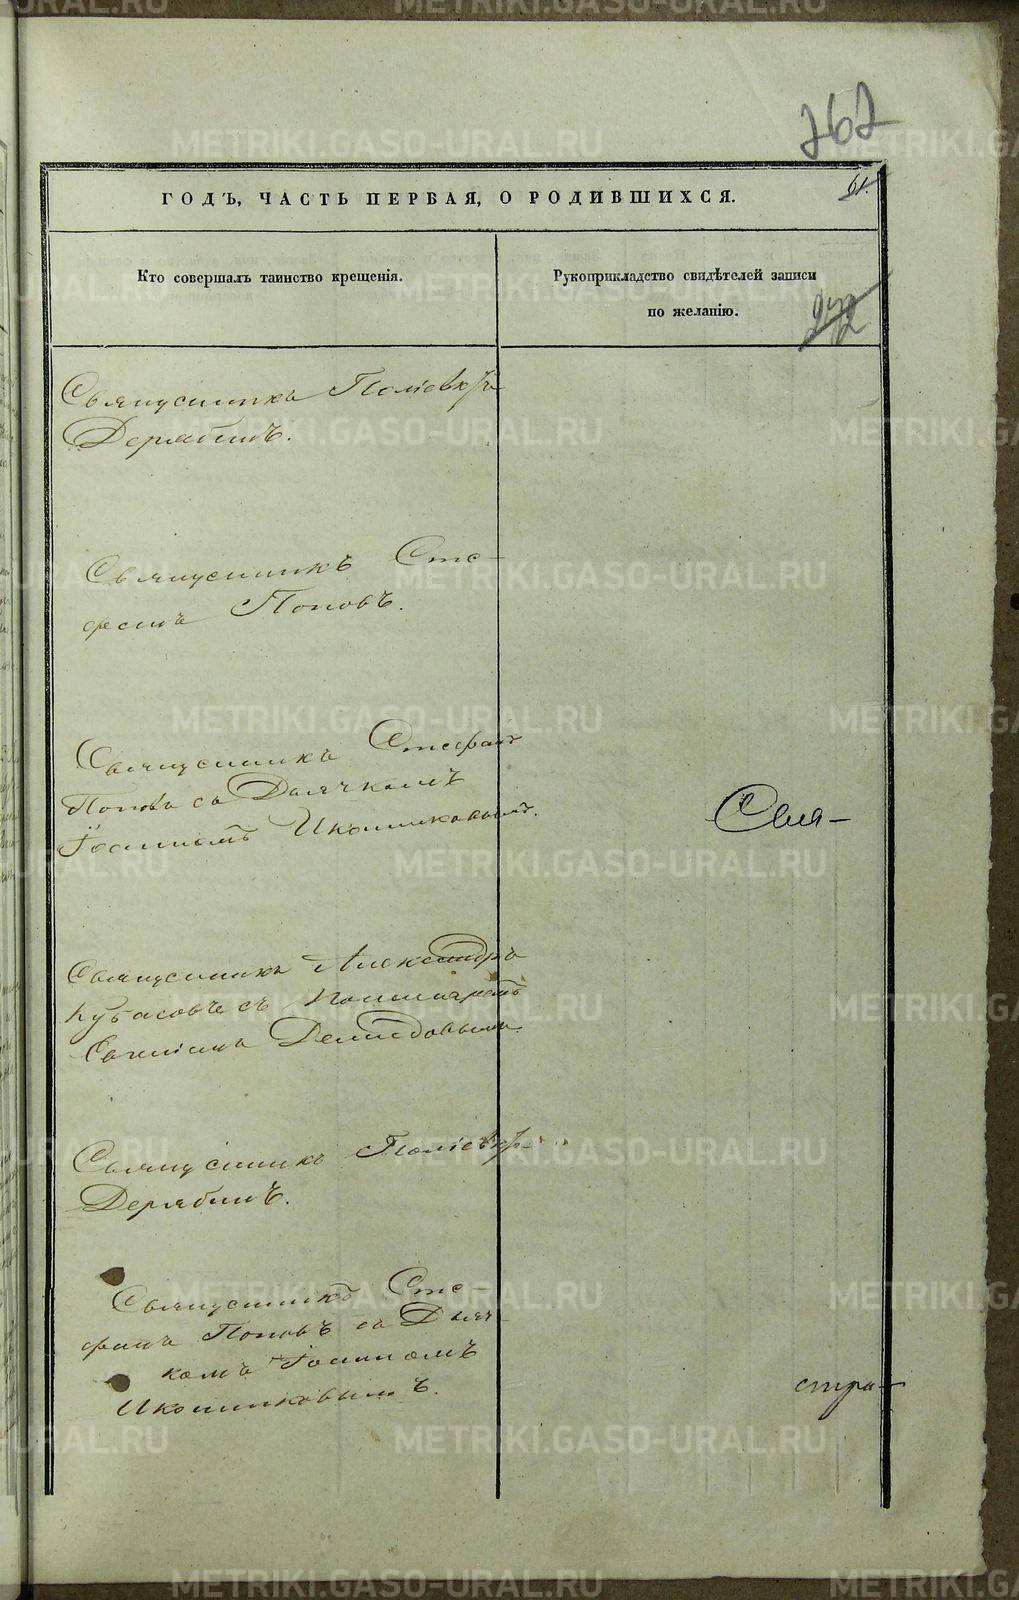 262
ГОДЪ, ЧАСТЬ ПЕРВАЯ, О РОДИВШИХСЯ.
61.
Кто совершалъ таинство крещенія.
Рукоприкладство свидѣтелей записи
по желанію.
272
Священникъ Поліевктъ
Дерябинъ.
Священникъ Сте-
фанъ Поповъ.
Священникъ Стефанъ
Поповъ съ Дьячкомъ
Іоанномъ Иконниковымъ.
Свя-
Священникъ Александръ
Кубасовъ съ Пономаремъ
Демидовымъ
Священникъ Поліевктъ
Дерябинъ.
Священникъ Сте-
фанъ Поповъ съ Дьяч-
комъ Іоанномъ
Иконниковымъ.
стра-
METRIKI.GASO-URAL.RU